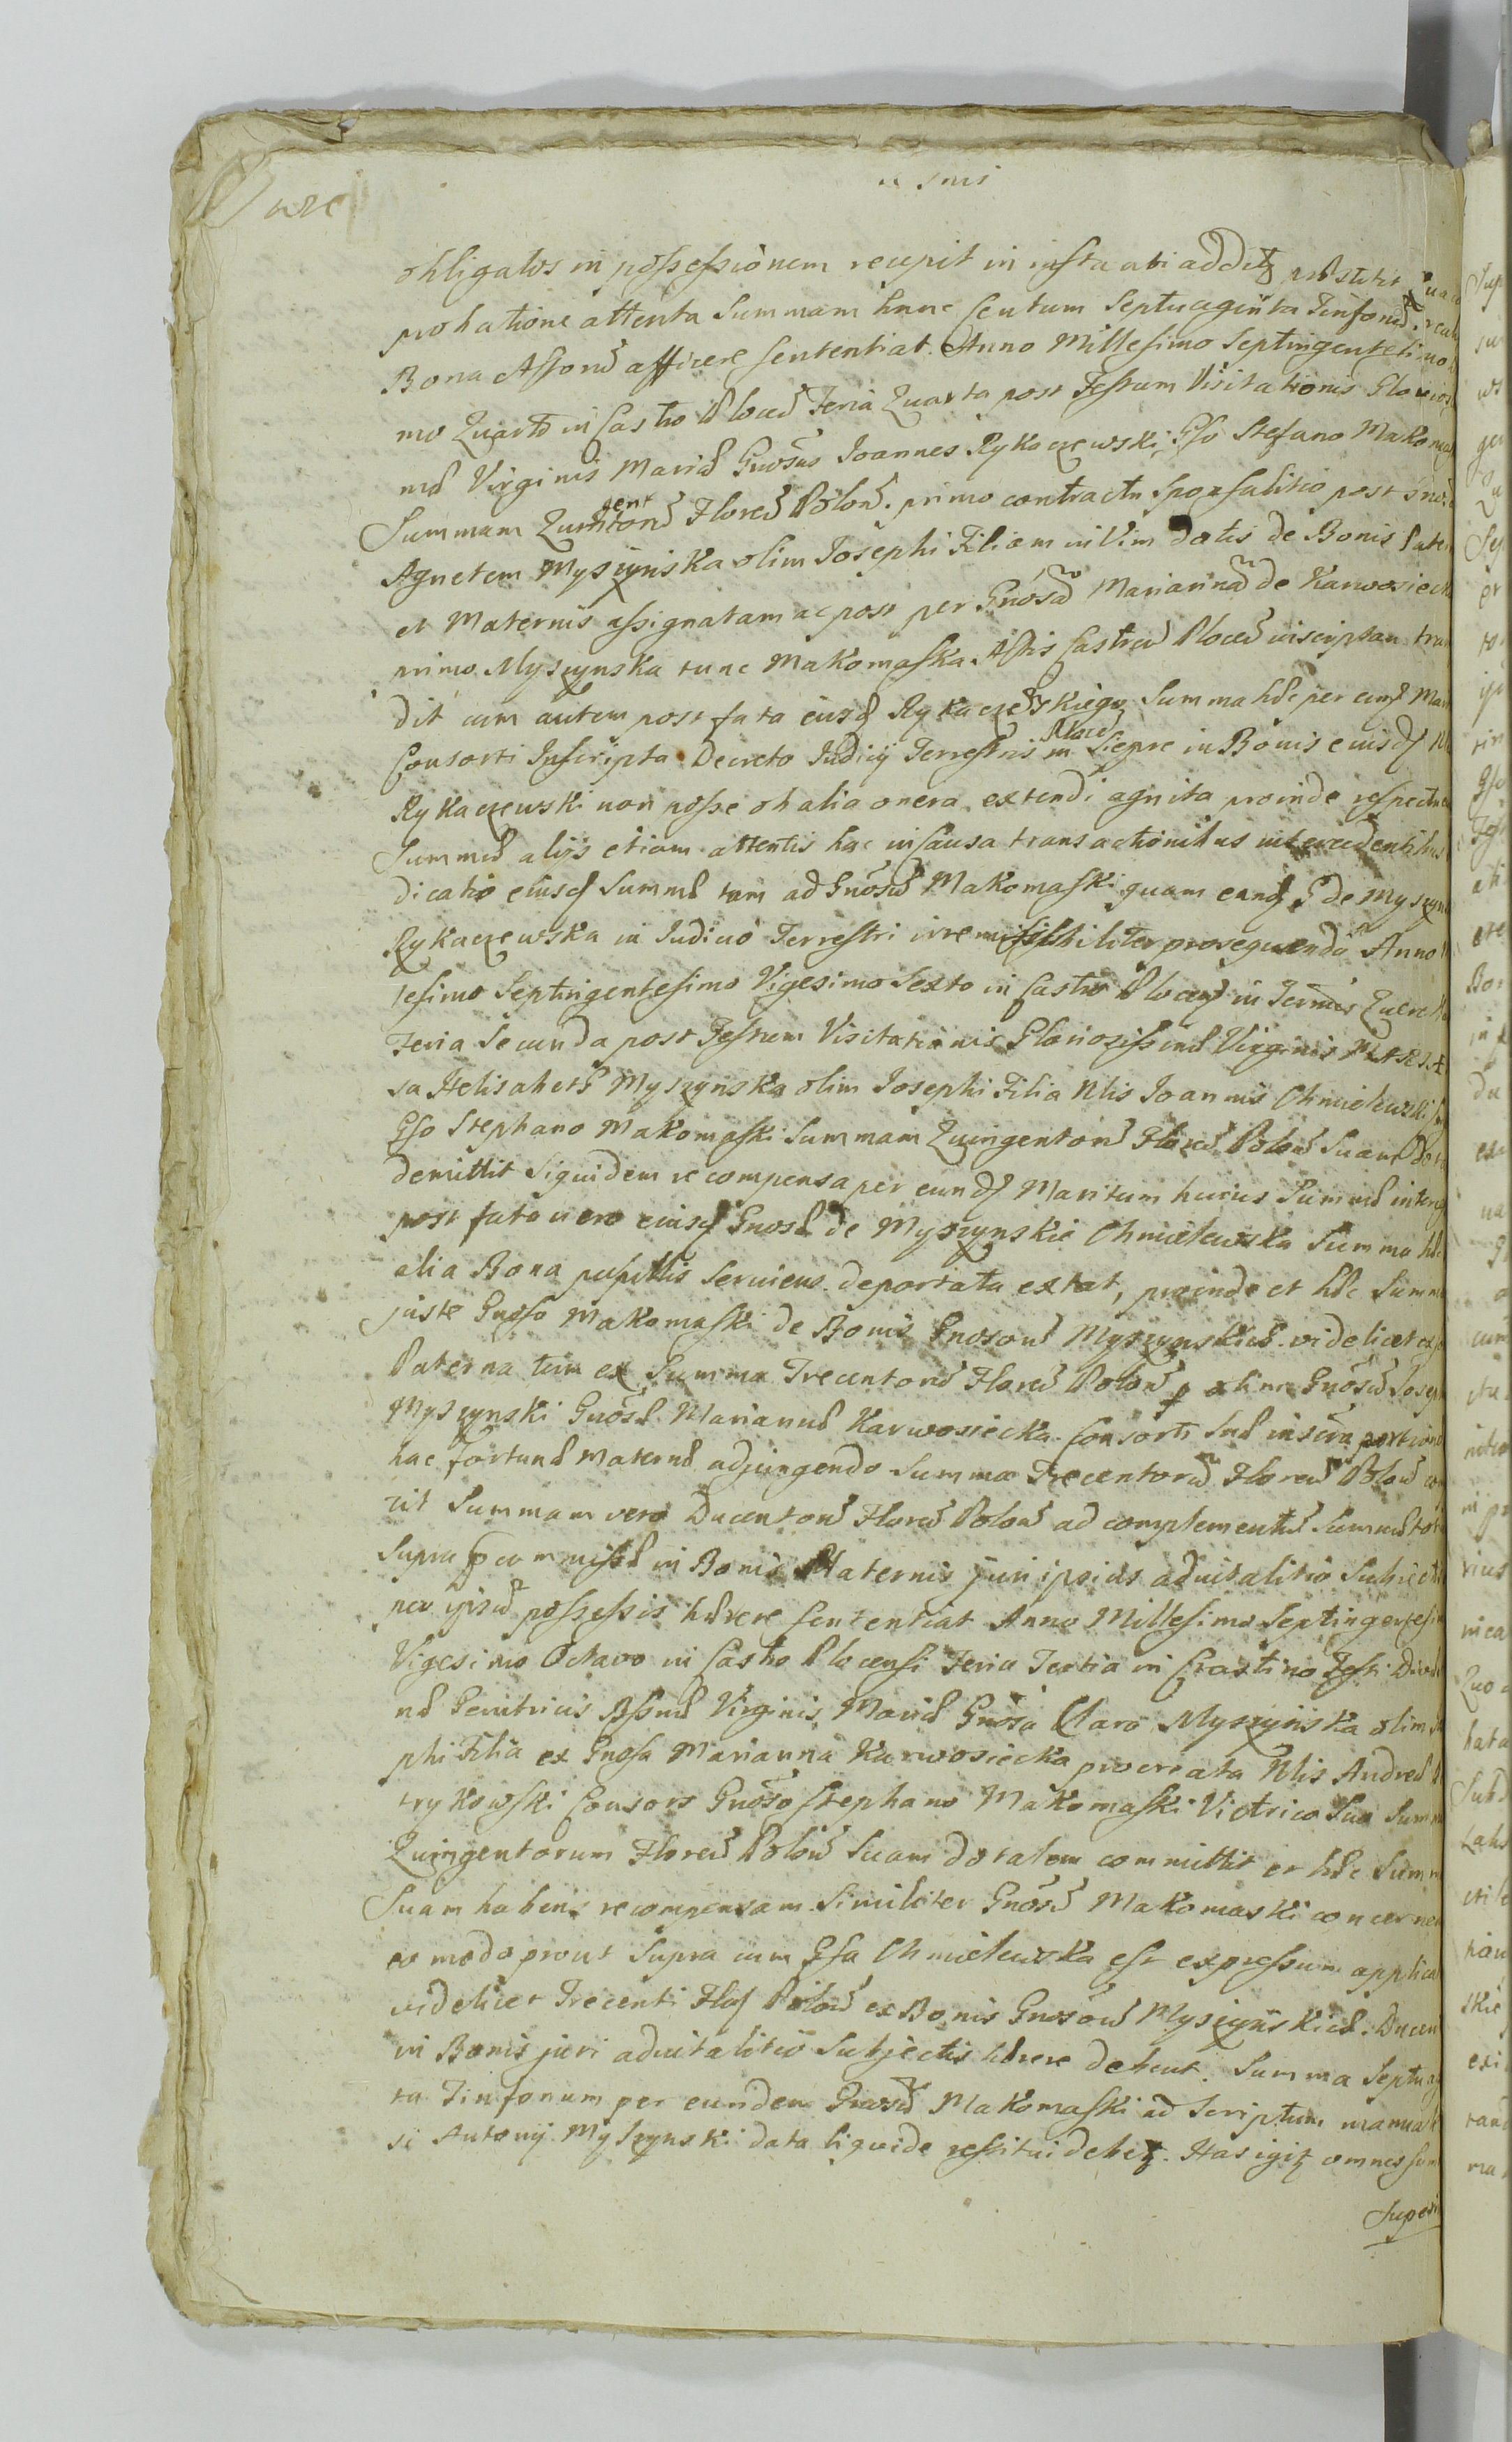 obligatos in possessionem recepit in insta ubi addetz prosstitit
probatione attenta Summam hanc Centum Septuaginta Tinforũ
Bona Assorũ afficere sententiat. Anno Millesimo Septingentesimo
mo Quarto in Castro Plocen Feria Quarta post Festum Visitationis Glorios
næ Virginis Mariæ Gnosus Joannes Rykaczewski Gso Stefano Makomas
Summam Quingentorũ Floreũ Polon. primo contractu Sponsalitio post
Agnetem Myszynska olim Josephi Filiam in Vim dotis de Bonis Pater
et Maternis assignatam ac post per Gnosã Mariannã de Karwosieck
primo Myszynska tunc Makomaska Actis Castren Plocen inscriptam tran
dit cum autem post fata eiusd Rykaczewskiego Summa hæc per eund Mar
Consorti Inscripta Decreto Judicij Terrestris Plocen in Siepre in Bonis eiusd
Rykaczewski non posse ob alia onera extendi agnita proinde respectu
Summæ alijs etiam attentis hac in Causa transactionibus intercedentibus
dicatio eiusd Summæ tam ad Gnosũ Makomaski quam eand G de Myszyn
Rykaczewska in Judicio Terrestri irremissibiliter prosequenda Anno
lesimo Septingentesimo Vigesimo Sexto in Castro Plocen in Terminis Querel
Feria Secunda post Festum Visitationis Gloriosissimæ Virginis Mariæ
sa Helisabeth Myszynska olim Josephi Filia Nlis Joannis Chmielewski
Gso Stephano Makomaski Summam Quingentorũ Floreũ Polon Suam Do
demittit Siquidem recompensa per eund Maritum huius Summæ integ
post fata vero eiusd Gnosæ de Myszynskie Chmielewska Summa hæc
alia Bona pupillis serviens deportata extat, proinde et hæc Summa
juste Gnoso Makomaski de Bonis Gnosorũ Myszynskich videlicet ex
Paterna tum ex Summa Trecentorũ Floreũ Polon p olim Gnosũ Joseph
Myszynski Gnosæ Mariannæ Karwosiecka Consorti Suæ inscta portione
hac fortunæ Maternæ adjungendo Summæ Trecentorũ Floreũ Polon
rit Summam vero Ducentorũ Floreũ Polon ad complementũ Summæ tot
Supra commissæ in Bonis Maternis juri ipsius advitalitio Subiectis
per ipsũ possessis hærere sententiat Anno Millesimo Septingentesimo
Vigesimo Octavo in Castro Plocensi Feria Tertia in Crastino Festi Divi
næ Genitricis Assmæ Virginis Mariæ Gnosa Clara Myszynska olim
phi Filia ex Gnosa Marianna Karwosiecka procreata Nlis Andreæ
trykowski Consors Gnoso Stephano Makomaski Victrico Suo Summ
Quingentorum Floreũ Polon Suam dotalem committit et hæc Summ
Suam habens recompensam Similiter Gnosũ Makomaski concernen
eo modo prout Supra cum Gsa Chmielewska est expressum applica
videlicet Trecenti Flof Polon ex Bonis Gnosorũ Myszynskich. Ducen
in Bonis juri advitalitio Subjectis hærere debent. Summa Septuag
ta Tinfonum per eundem Gnosũ Makomaski ad Scriptum manuale
si Antonij Myszynski data liquide restitui debetz. Has igitz omnes sum
Superi